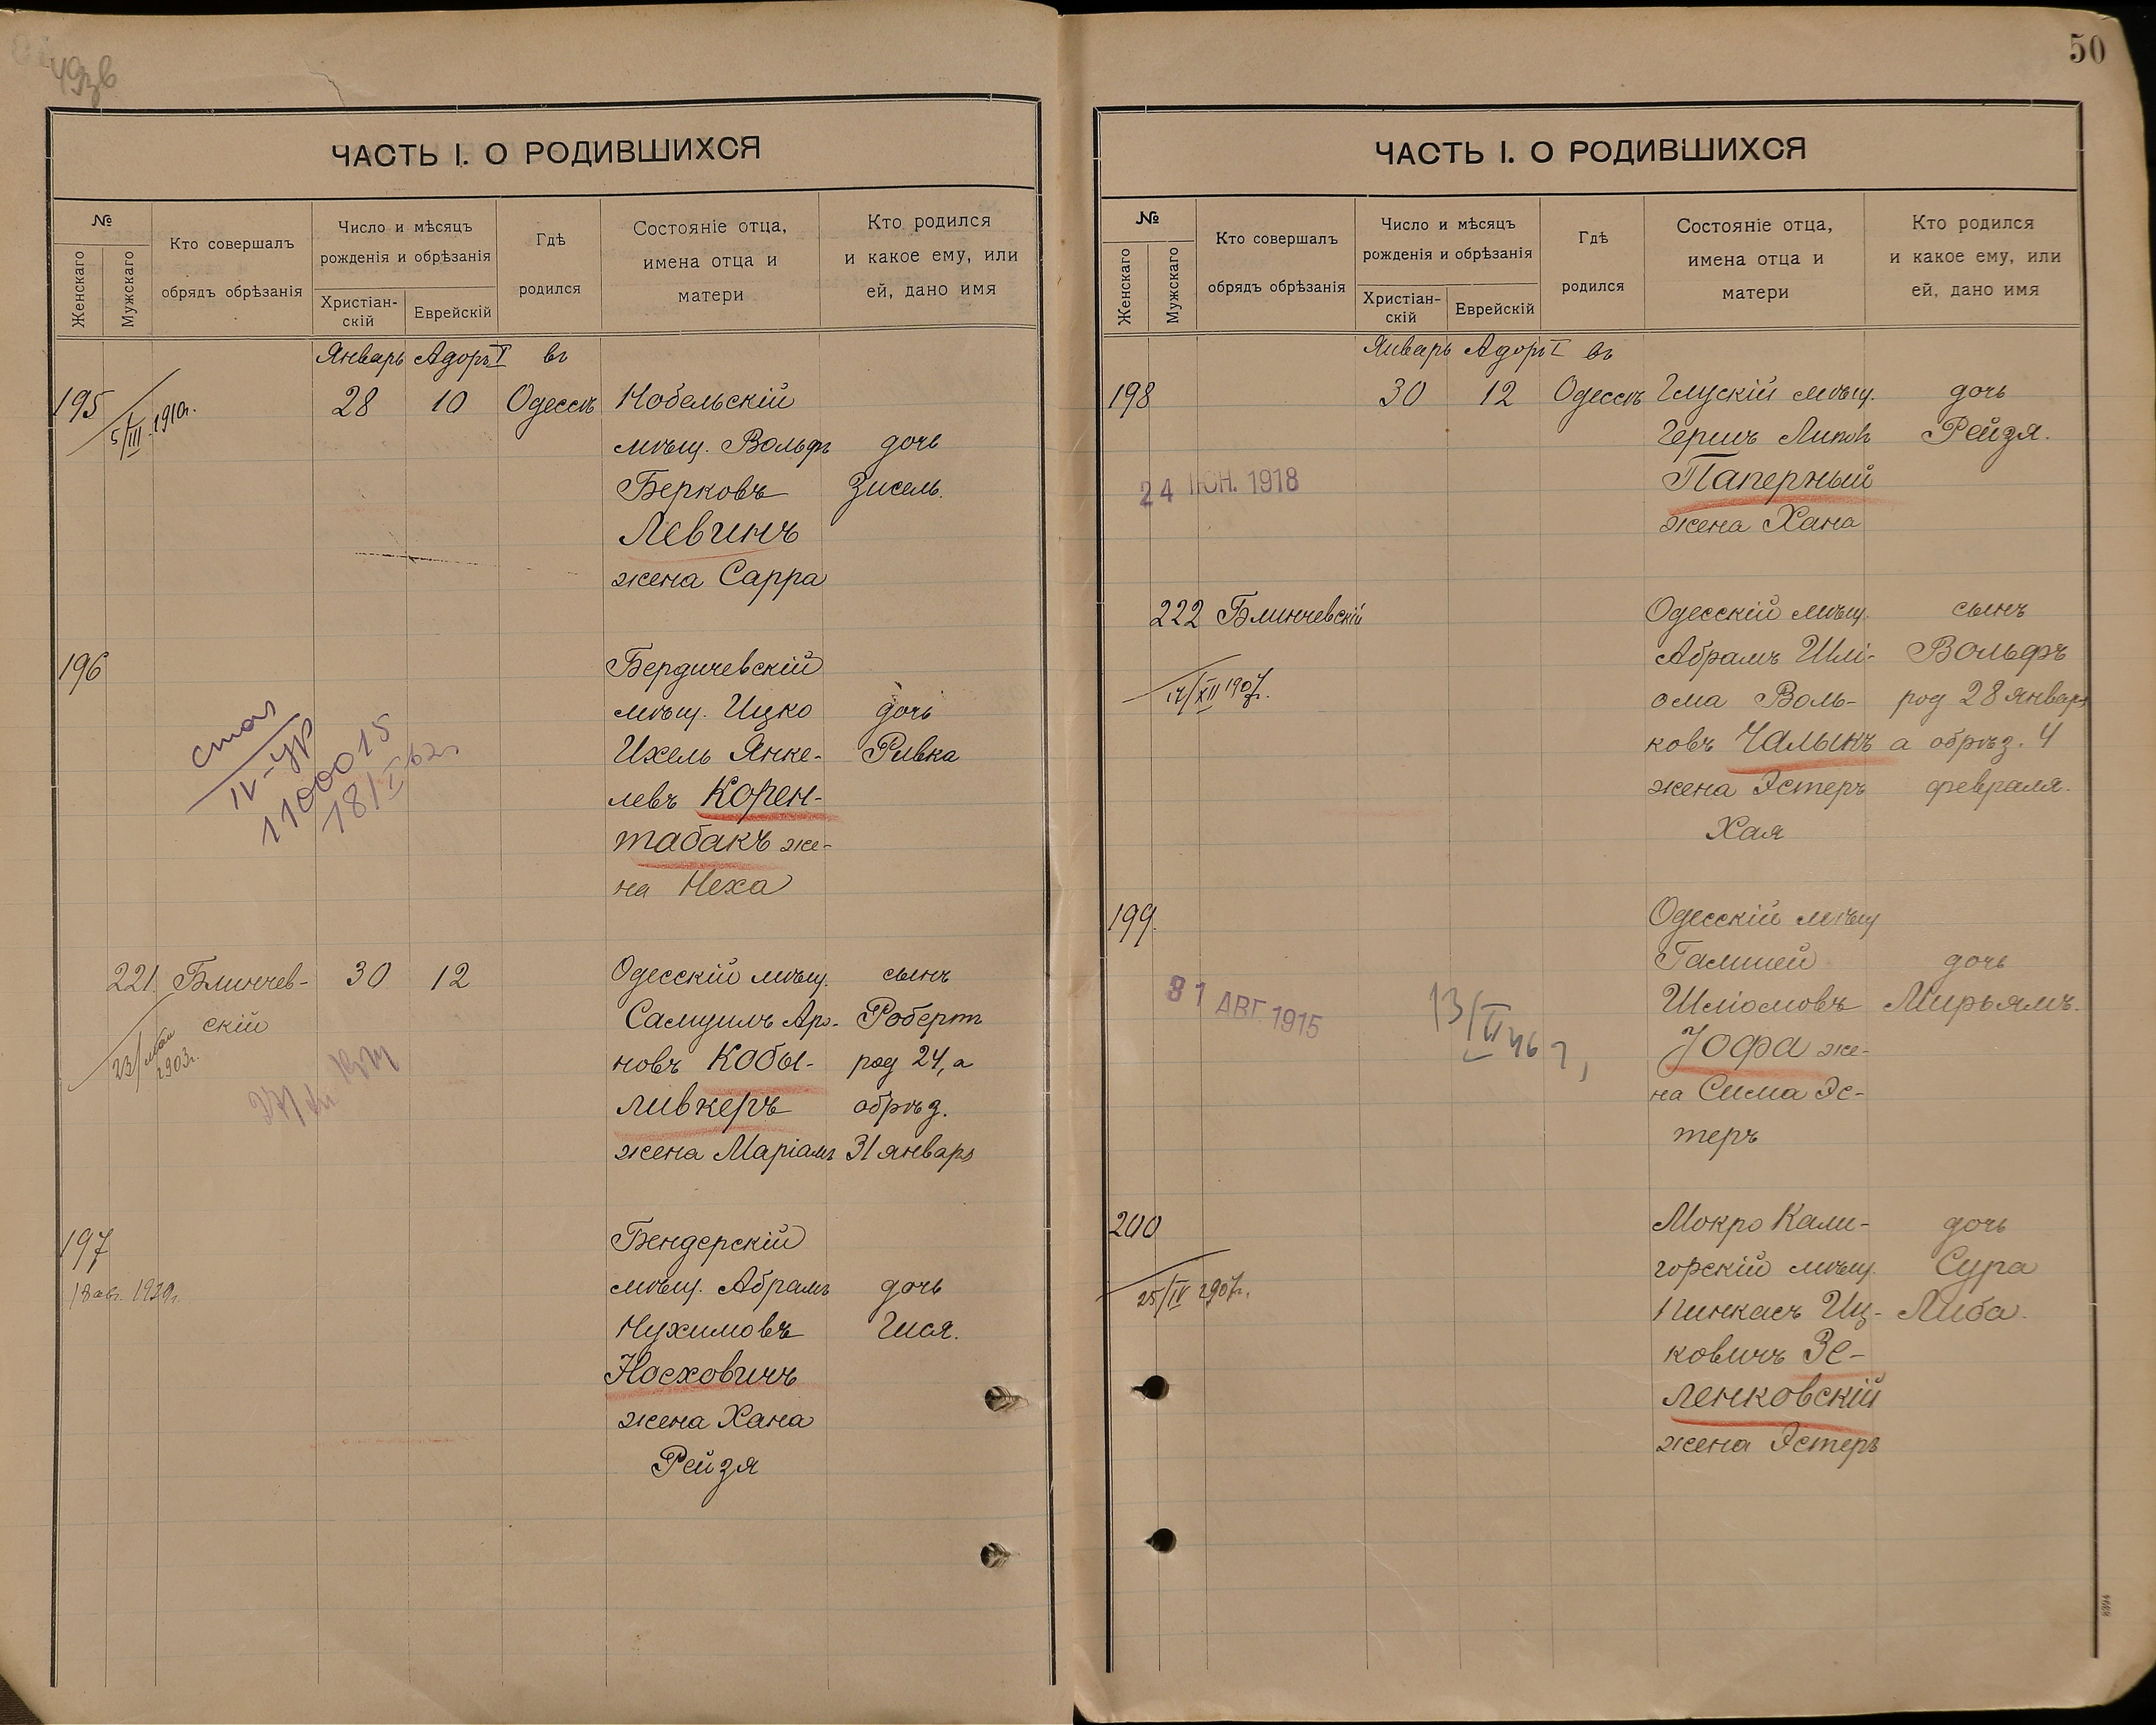 49зв
ЧАСТЬ I. О РОДИВШИХСЯ
№
Женскаго
Мужскаго
Кто совершалъ
обрядъ обрѣзанія
Число и мѣсяцъ
рожденія и обрѣзанія
Христіан-
скій
Еврейскій
Гдѣ
родился
Состояніе отца,
имена отца и
матери
Кто родился
и какое ему, или
ей, дано имя
Январь Адоръ I въ
195 28 10 Одессѣ Кобельскій
5/III 1910г.
мѣщ. Вольфъ дочь
Берковъ Зисель.
Левинъ
жена Сарра
196 Бердичевскій
мѣщ. Ицко дочь
Ихель Янке- Ривка
левъ Корен-
табакъ же-
на Неха
IV-УР
1100015
18/I 62г
221 Блинчев- 30 12 Одесскій мѣщ. сынъ
скій Самуилъ Аро- Робертъ
23/мая 1903г.
новъ Кобы- род 24, а
ливкеръ обрѣз.
жена Маріамъ 31 января
197 Бендерскій
18 авг. 1920г.
мѣщ. Абрамъ дочь
Нухимовъ Гися.
Носховичъ
жена Хана
Рейзя
50
ЧАСТЬ I. О РОДИВШИХСЯ
№
Женскаго
Мужскаго
Кто совершалъ
обрядъ обрѣзанія
Число и мѣсяцъ
рожденія и обрѣзанія
Христіан-
скій
Еврейскій
Гдѣ
родился
Состояніе отца,
имена отца и
матери
Кто родился
и какое ему, или
ей, дано имя
Январь Адоръ I въ
198 30 12 Одессѣ Глускій мѣщ. дочь
Гершъ Липовъ Рейзя.
24 ІЮН. 1918
Паперный
жена Хана
222 Блинчевскій Одесскій мѣщ. сынъ
Абрамъ Шлі- Вольфъ
17/XII 1907г.
ома Воль- род 28 января
ковъ Чалыкъ а обрѣз. 4
жена Эстеръ февраля.
Хая
199. Одесскій мѣщ
Гамшей дочь
31 АВГ. 1915
13/II 46 г,
Шліомовъ Мирьямъ.
Іофа же-
на Сима Эс-
теръ
200 Мокро Кали- дочь
горскій мѣщ. Сура
25/IV 1907г.
Пинкасъ Иц- Либа.
ковичъ Зе-
ленковскій
жена Эстеръ